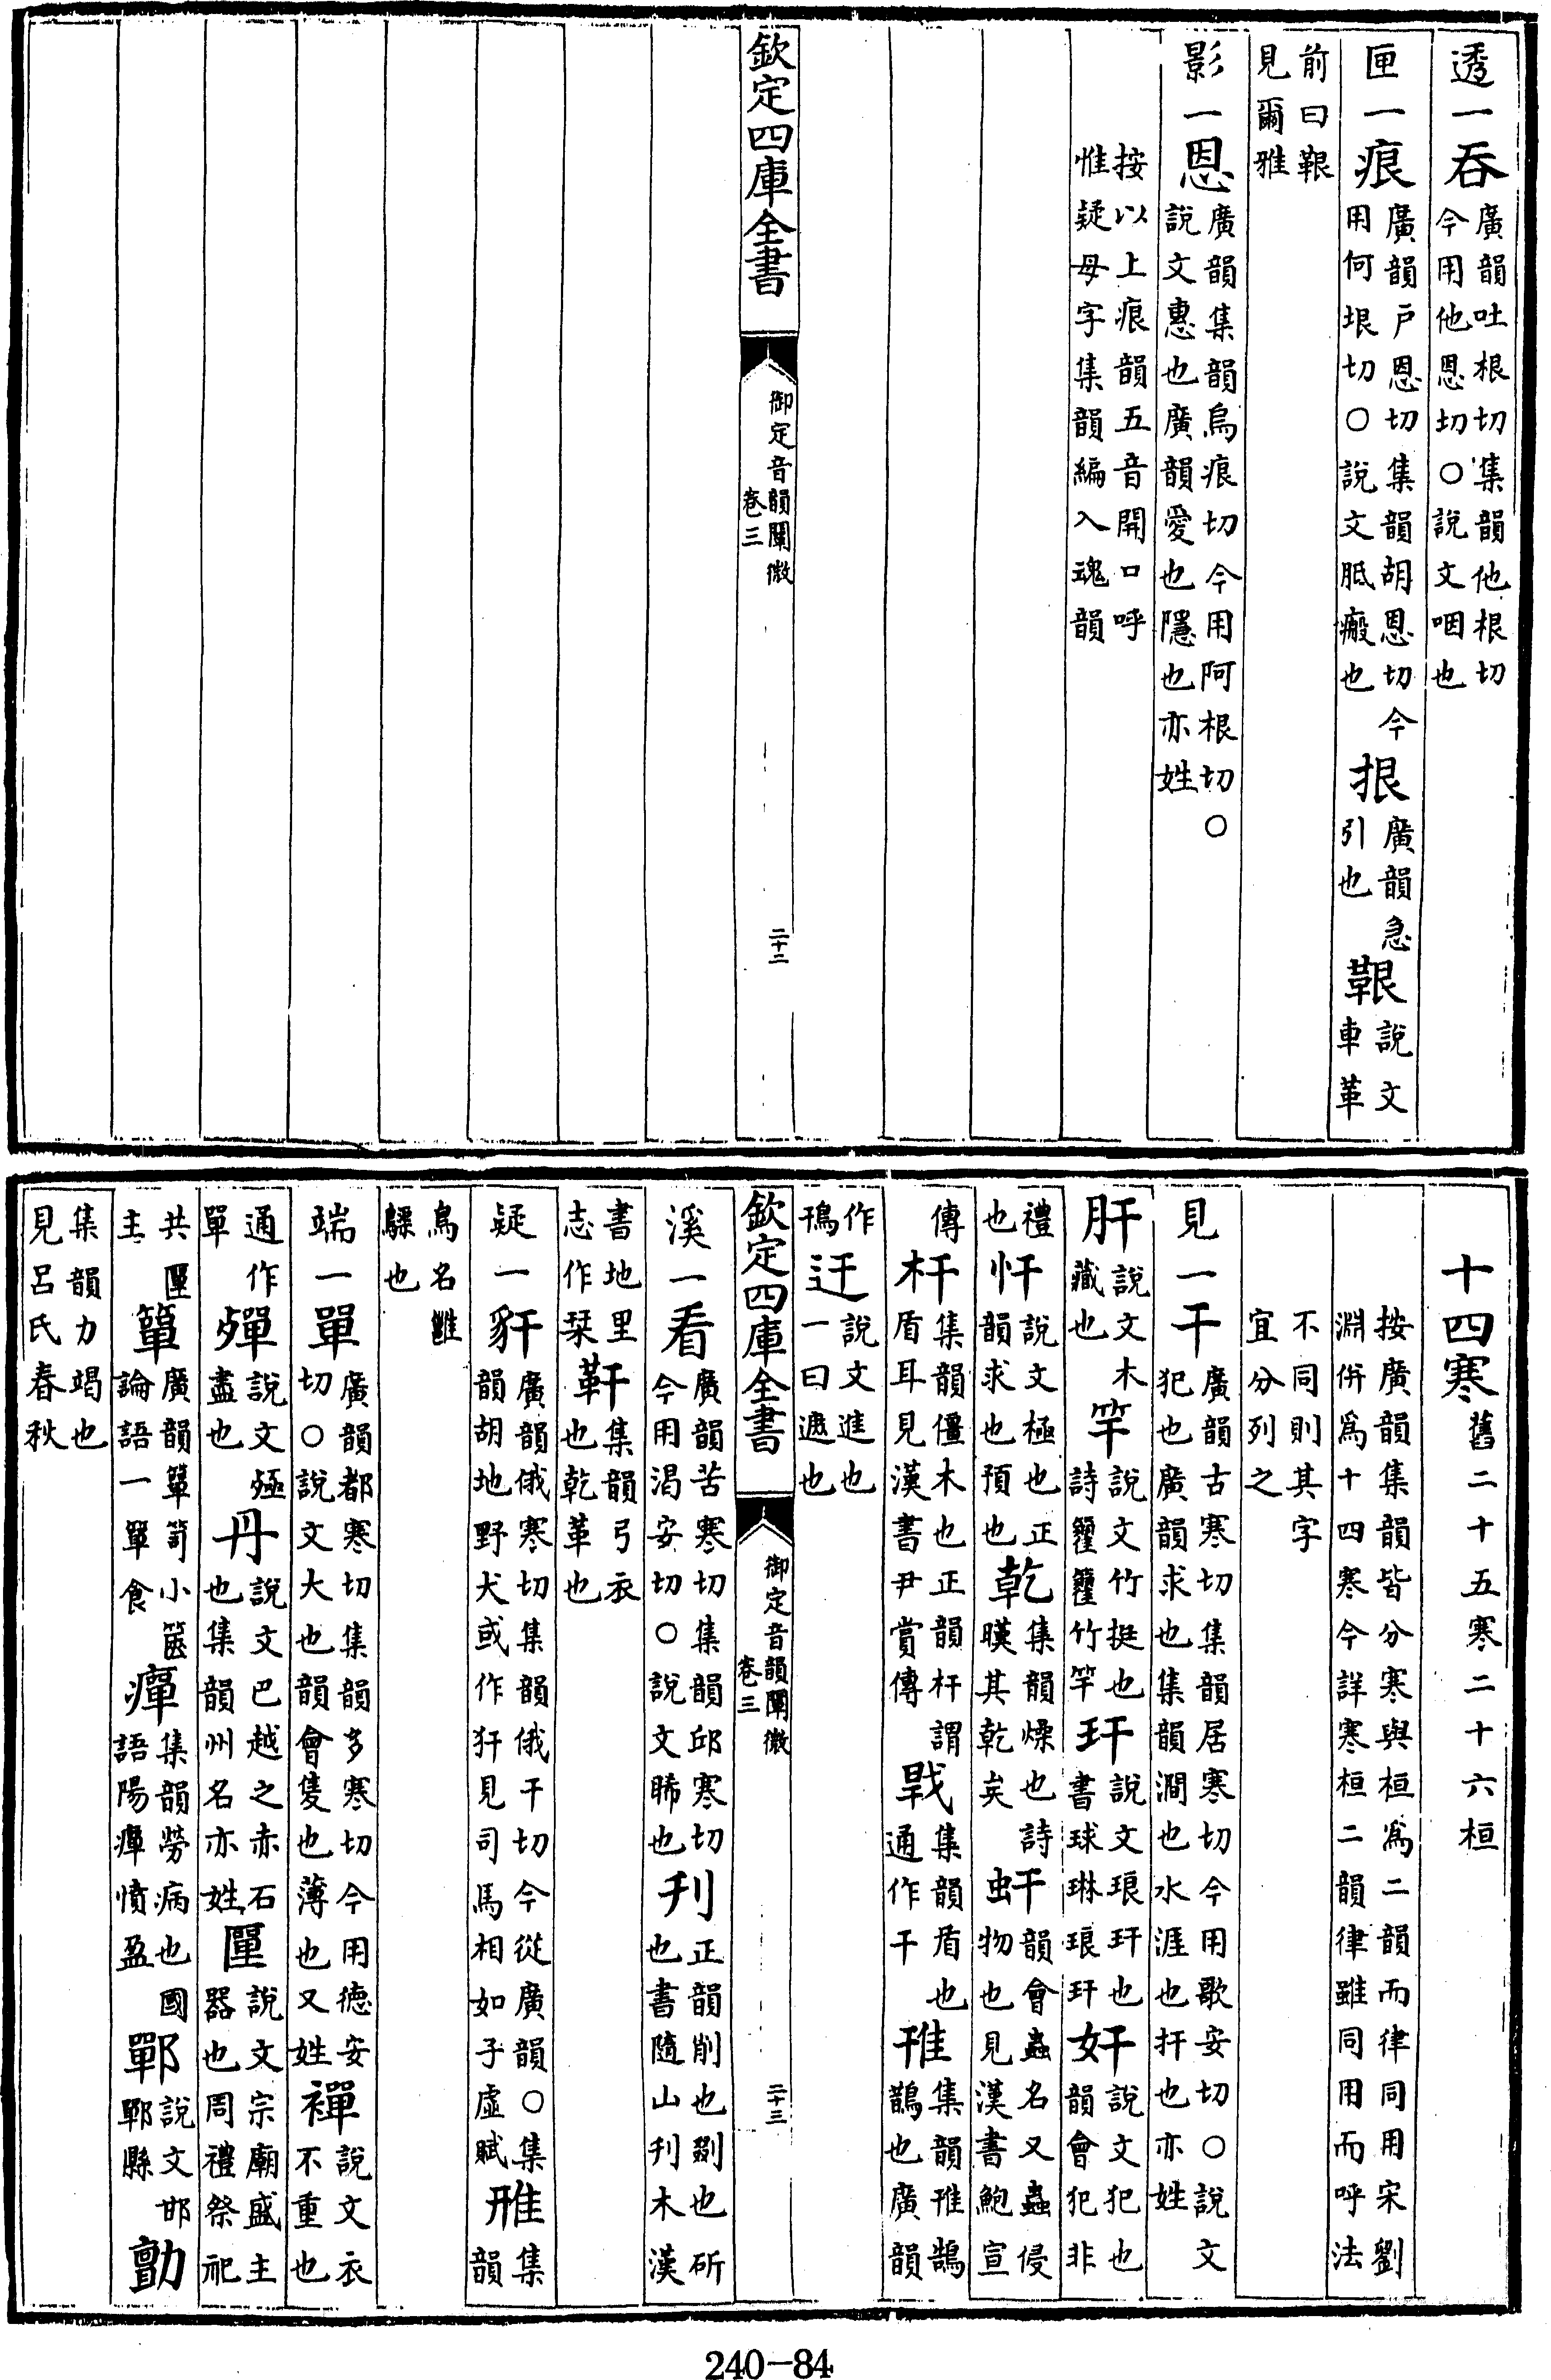 透一吞廣韻吐根切集韻他根切今用他恩切○說文咽也
匣一痕廣韻戸恩切集韻胡恩切今用何垠切○說文胝瘢也 拫廣韻急引也 鞎說文車革
前曰鞎見爾雅
影一恩廣韻集韻烏痕切今用阿根切○說文惠也廣韻愛也隱也亦姓
按以上痕韻五音開口呼惟疑母字集韻編入魂韻
欽定四庫全書 御定音韻闡微卷三 二十二
十四寒舊二十五寒二十六桓
按廣韻集韻皆分寒與桓為二韻而律同用宋劉淵併為十四寒今詳寒桓二韻律雖同用而呼法
不同則其字宜分列之
見一干廣韻古寒切集韻居寒切今用歌安切○說文犯也廣韻求也集韻澗也水涯也扞也亦姓
肝說文木藏也 竿說文竹挺也詩籊籊竹竿 玕說文琅玕也書球琳琅玕 奸說文犯也韻會犯非
禮也 忓說文極也正韻求也預也 乾集韻燥也詩暵其乾矣 虷韻會蟲名又蟲侵物也見漢書鮑宣
傳 杆集韻僵木也正韻杆謂盾耳見漢書尹賞傳 戰集韻盾也通作干 鳱集韻鳱鵠鵲也廣韻
作鳱 迀說文進也一曰遮也
欽定四庫全書 御定音韻闡微卷三 二十三
溪一看廣韻苦寒切集韻邱寒切今用渴安切○說文睎也 刋正韻削也剟也斫也書隨山刋木漢
書地里志作栞 靬集韻弓衣也乾革也
疑一豻廣韻俄寒切集韻俄干切今從廣韻○集韻胡地野犬或作犴見司馬相如子虛賦 雃集韻
鳥名雝䳩也
端一單廣韻都寒切集韻多寒切今用德安切○說文大也韻會隻也薄也又姓 襌說文衣不重也
通作單 殫說文殛盡也 丹說文巴越之赤石也集韻州名亦姓 匰說文宗廟盛主器也周禮祭祀
共匰主 簞廣韻簞笥小篋論語一簞食 癉集韻勞病也國語陽癉憤盈 鄲說文邯鄲縣 勯
集韻力竭也見呂氏春秋
240-84